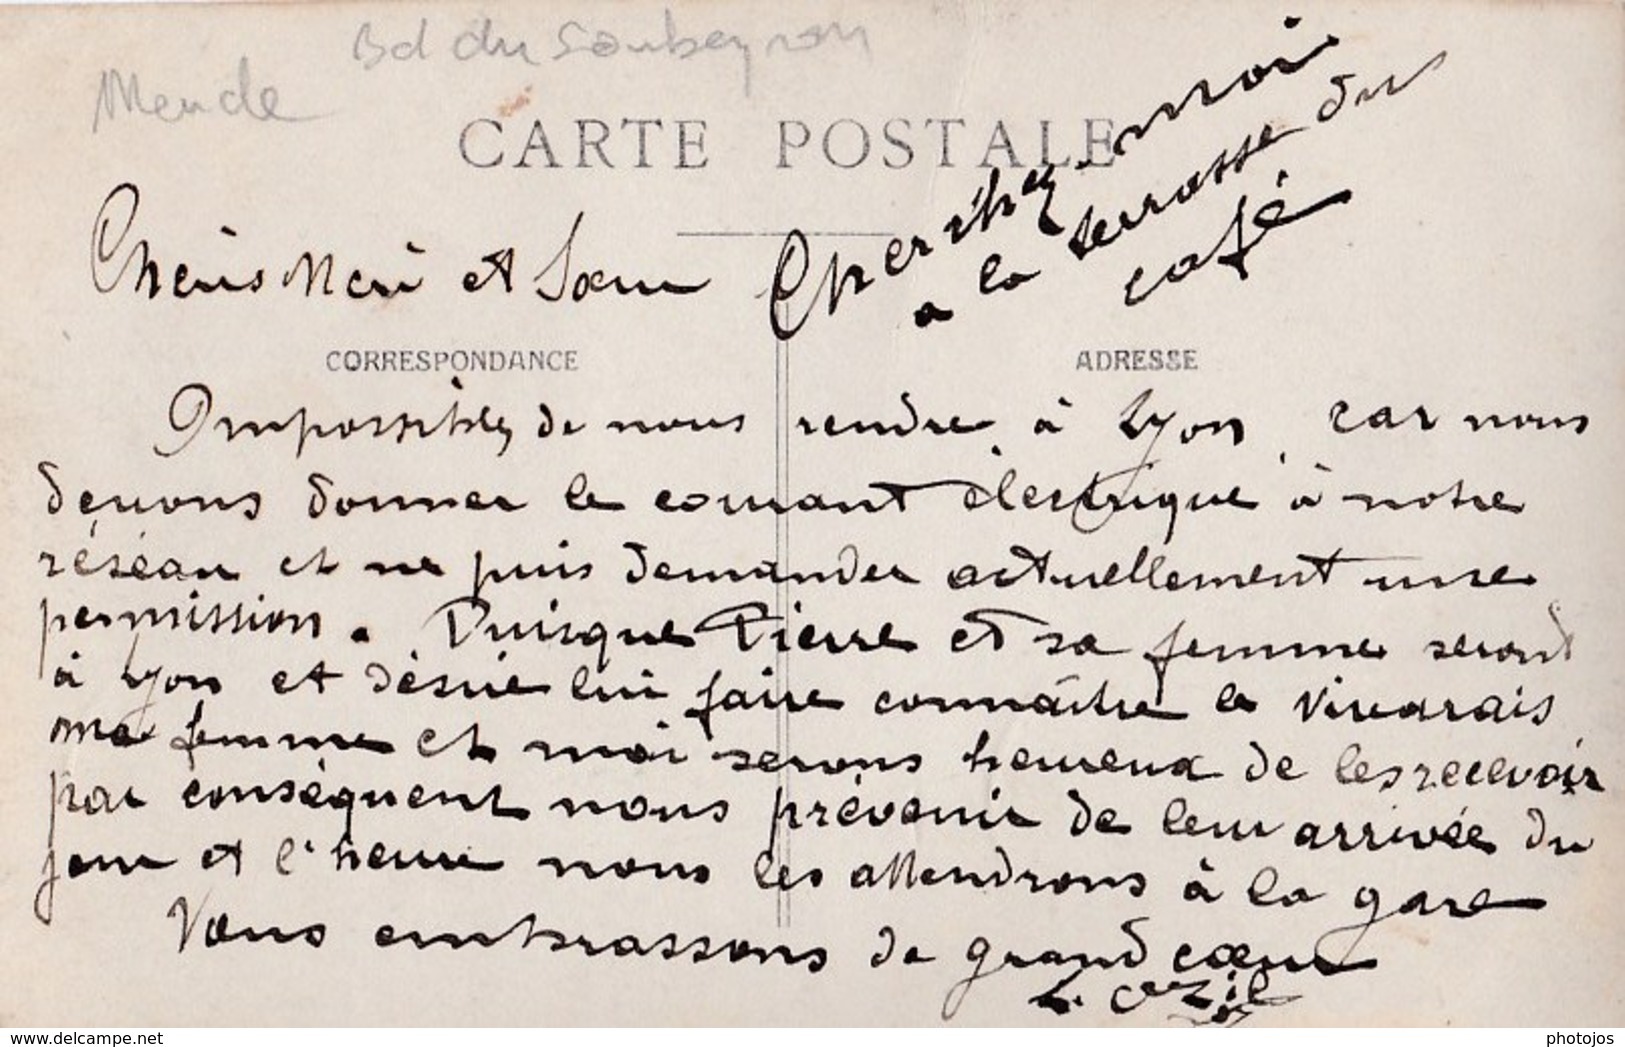 Bd du Soubeyran
Mende
CARTE POSTALE
Cherchez-moi
a la terrasse du
café
Chers Mère et Sœur
CORRESPONDANCE
ADRESSE
Impossible de nous rendre à Lyon car nous
devons donner le courant électrique à notre
réseau et ne puis demander actuellement une
permission. Puisque Pierre et sa femme seront
à Lyon et désire lui faire connaître le Vivarais
ma femme et moi serons heureux de les recevoir
par conséquent nous prévenir de leur arrivée du
jour et l'heure nous les attendrons à la gare
Vous embrassons de grand cœur
photojos